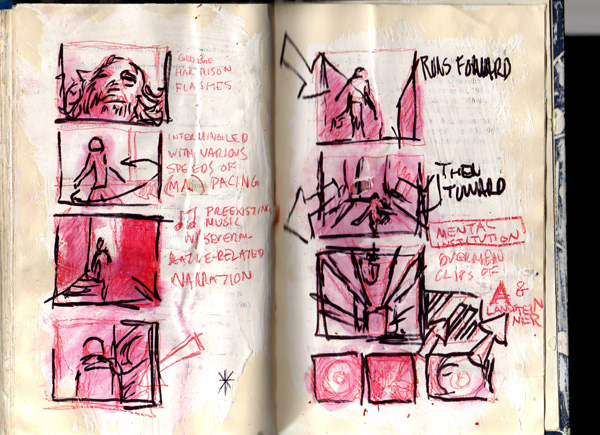 GEORGE
HARRISON
FLASHES
INTERMINGLED
WITH VARIOUS
SPEEDS OF
MAD PACING
PREEXISTING
MUSIC
W/ SEVERAL
RELATED
NARRATION
RUNS FORWARD
THEN
TOWARD
MENTAL
INSTITUTION
OVERHEAD
CLIPS OF
A &